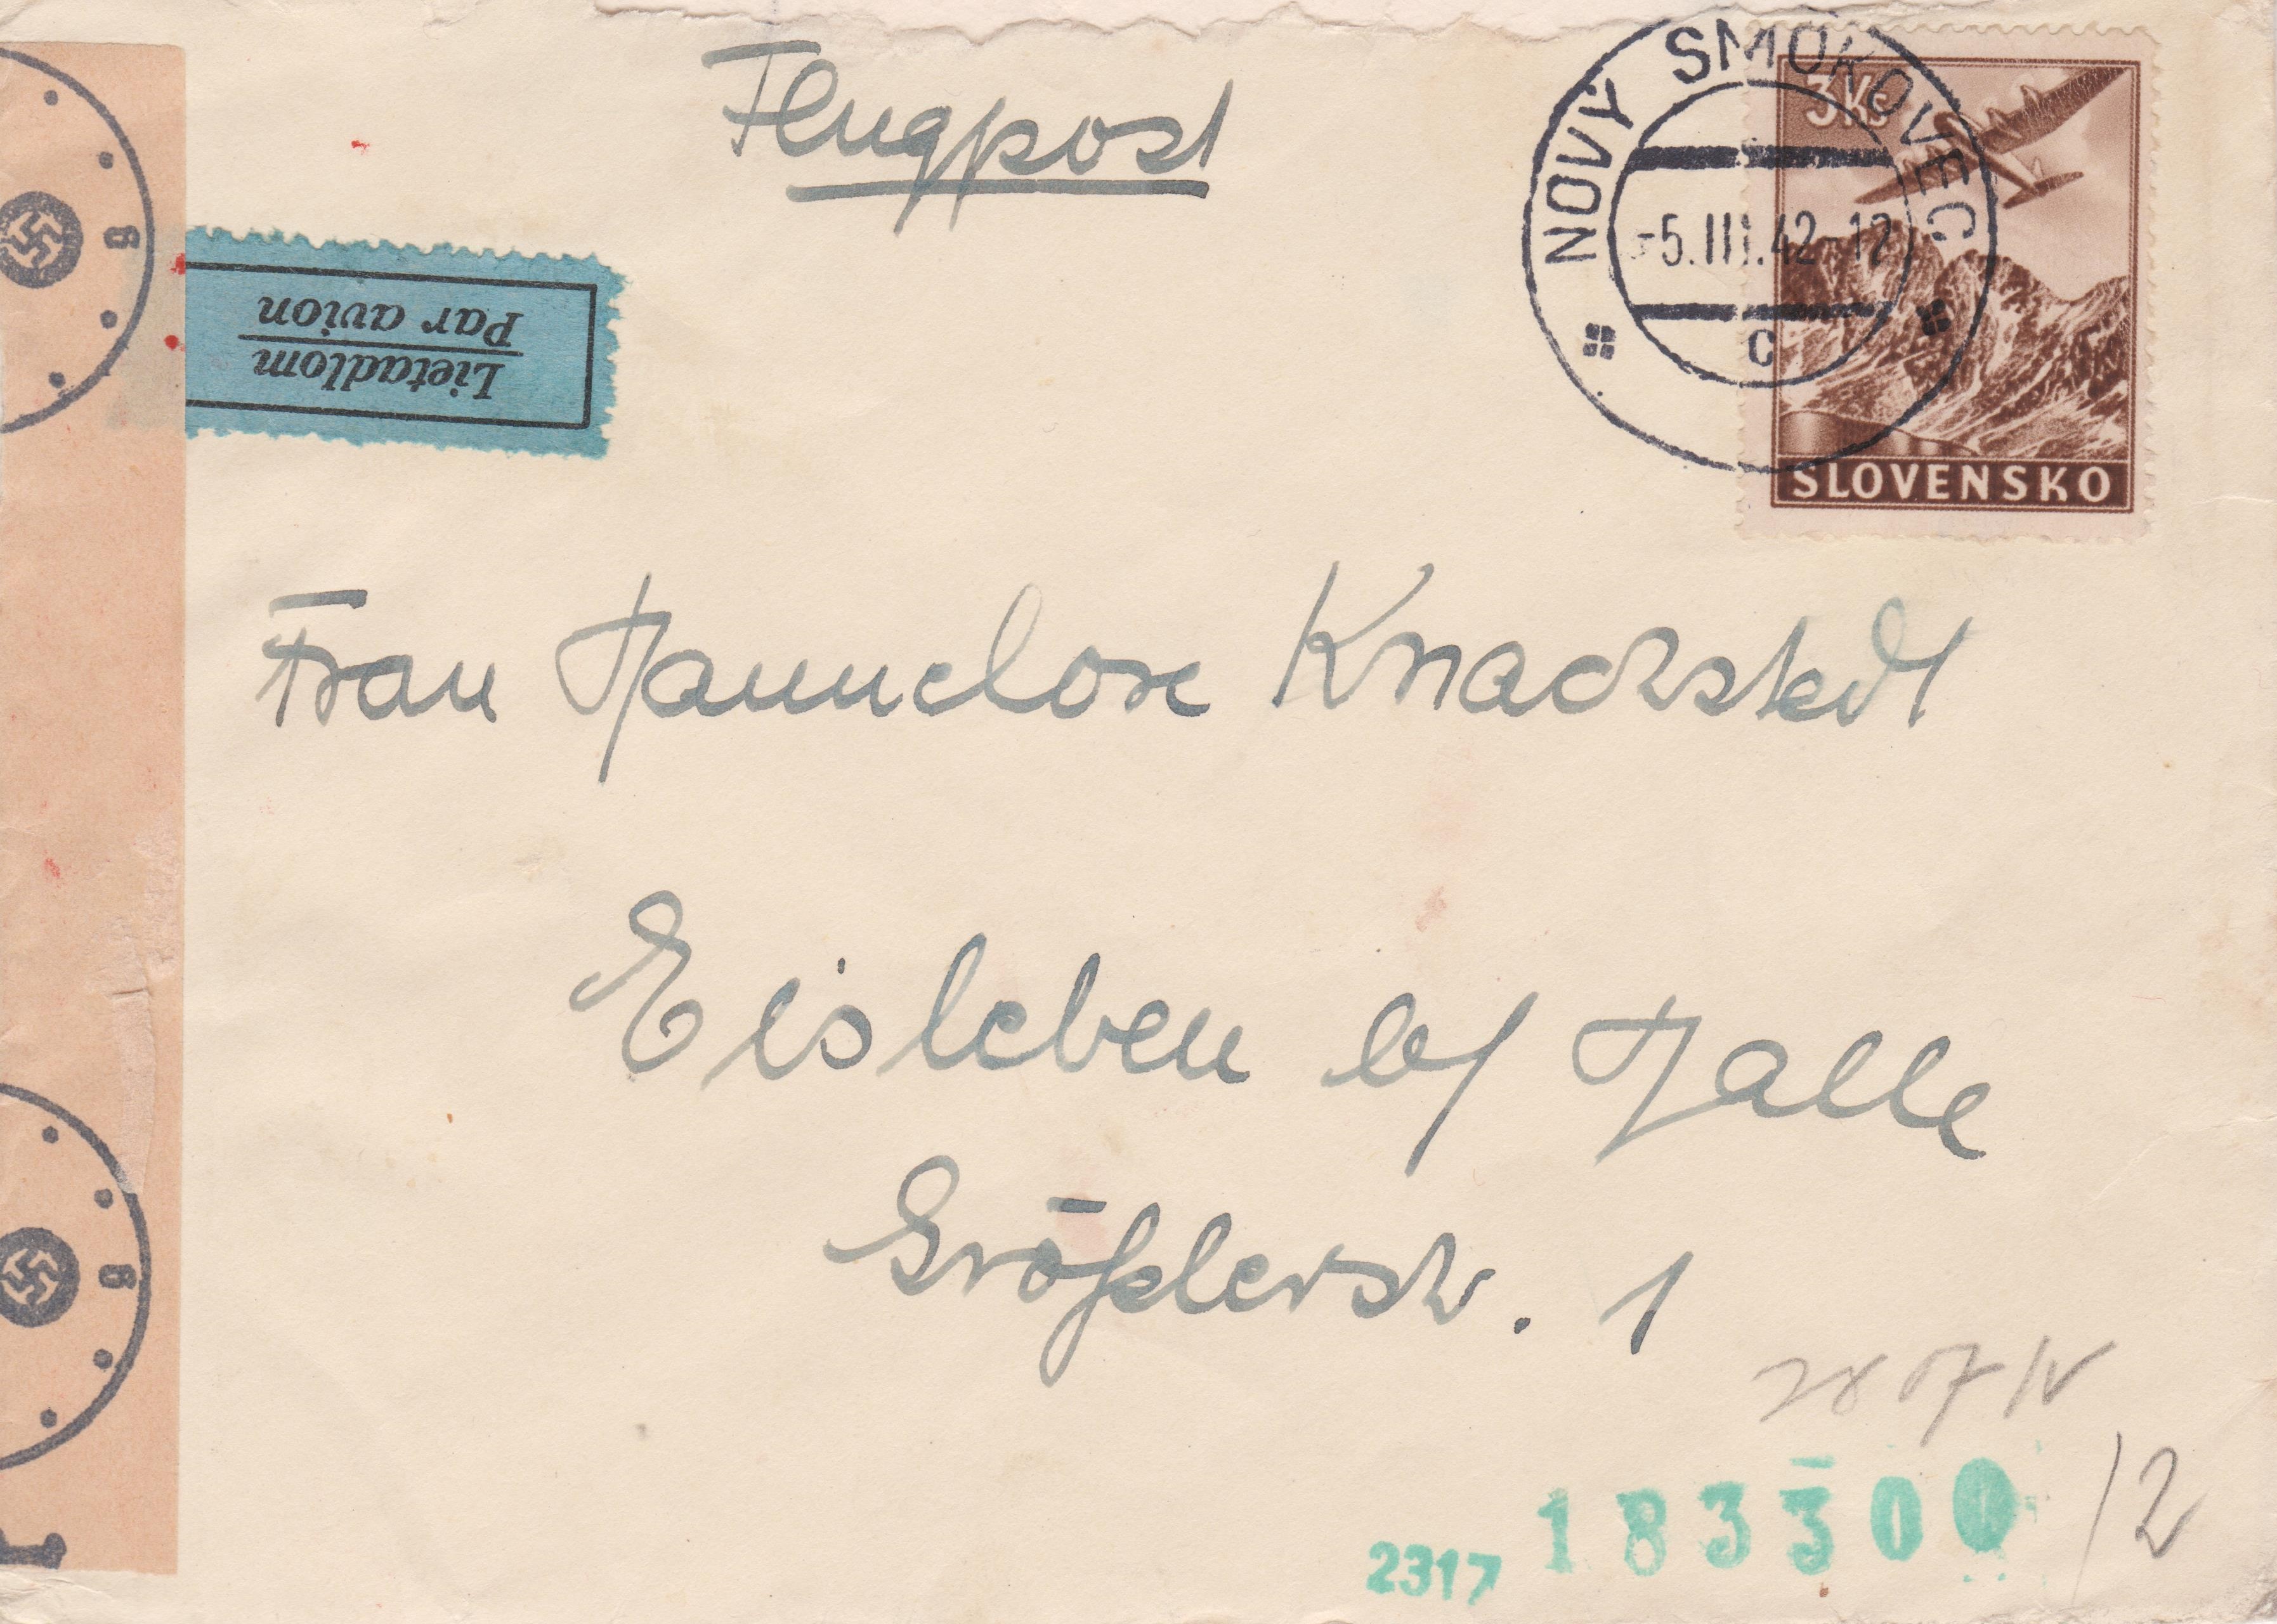 Flugpost
NOVÝ SMOKOVEC
-5.III.42-12
c
3 Ks
SLOVENSKO
Lietadlom
Par avion
g
Frau Hannelore Knackstedt
Eisleben b/ Halle
Größlerstr. 1
g
2317 183300
/2